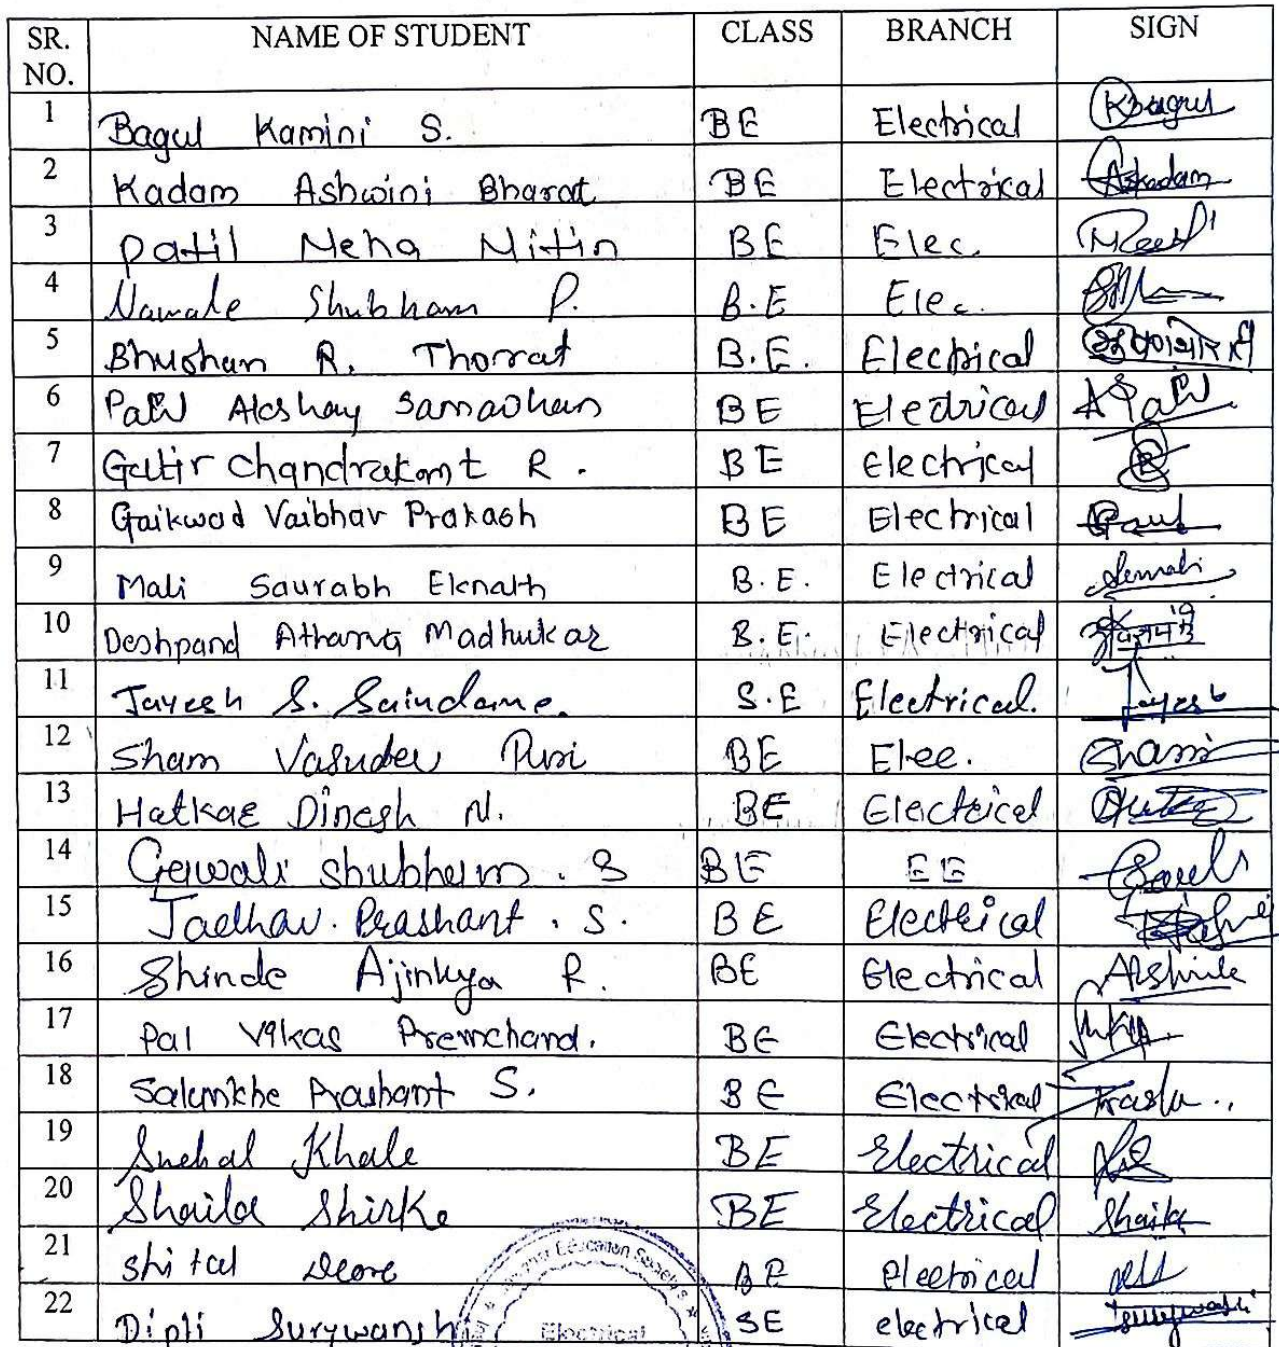 SR. NO. NAME OF STUDENT CLASS BRANCH SIGN
1 Bagul Kamini S. BE Electrical KBagul
2 Kadam Ashwini Bharat BE Electrical Askadam
3 Patil Neha Nitin BE Elec.
4 Nawale Shubham P. B.E Elec.
5 Bhushan R. Thorat B.E. Electrical
6 Patil Akshay Samadhan BE Electrical APatil
7 Chandrakant R. BE Electrical
8 Gaikwad Vaibhav Prakash BE Electrical
9 Mali Saurabh Eknath B.E. Electrical
10 Deshpand Atharva Madhukar B.E. Electrical
11 Jayesh S. Saindane. S.E Electrical. Jayesh
12 Sham Vasudev Puri BE Elec. Sham
13 Hatkar Dinesh N. BE Electrical
14 Gawali Shubham . S BE EE
15 Jadhav. Prashant . S. BE Electrical
16 Shinde Ajinkya R. BE Electrical ARShinde
17 Pal Vikas Premchand. BE Electrical
18 Salunkhe Prashant S. BE Electrical
19 Snehal Khale BE Electrical
20 Shaila Shirke BE Electrical Shaila
21 Shital Deore BE electrical
22 Dipti Surywansh SE electrical
Education Society's
Electrical